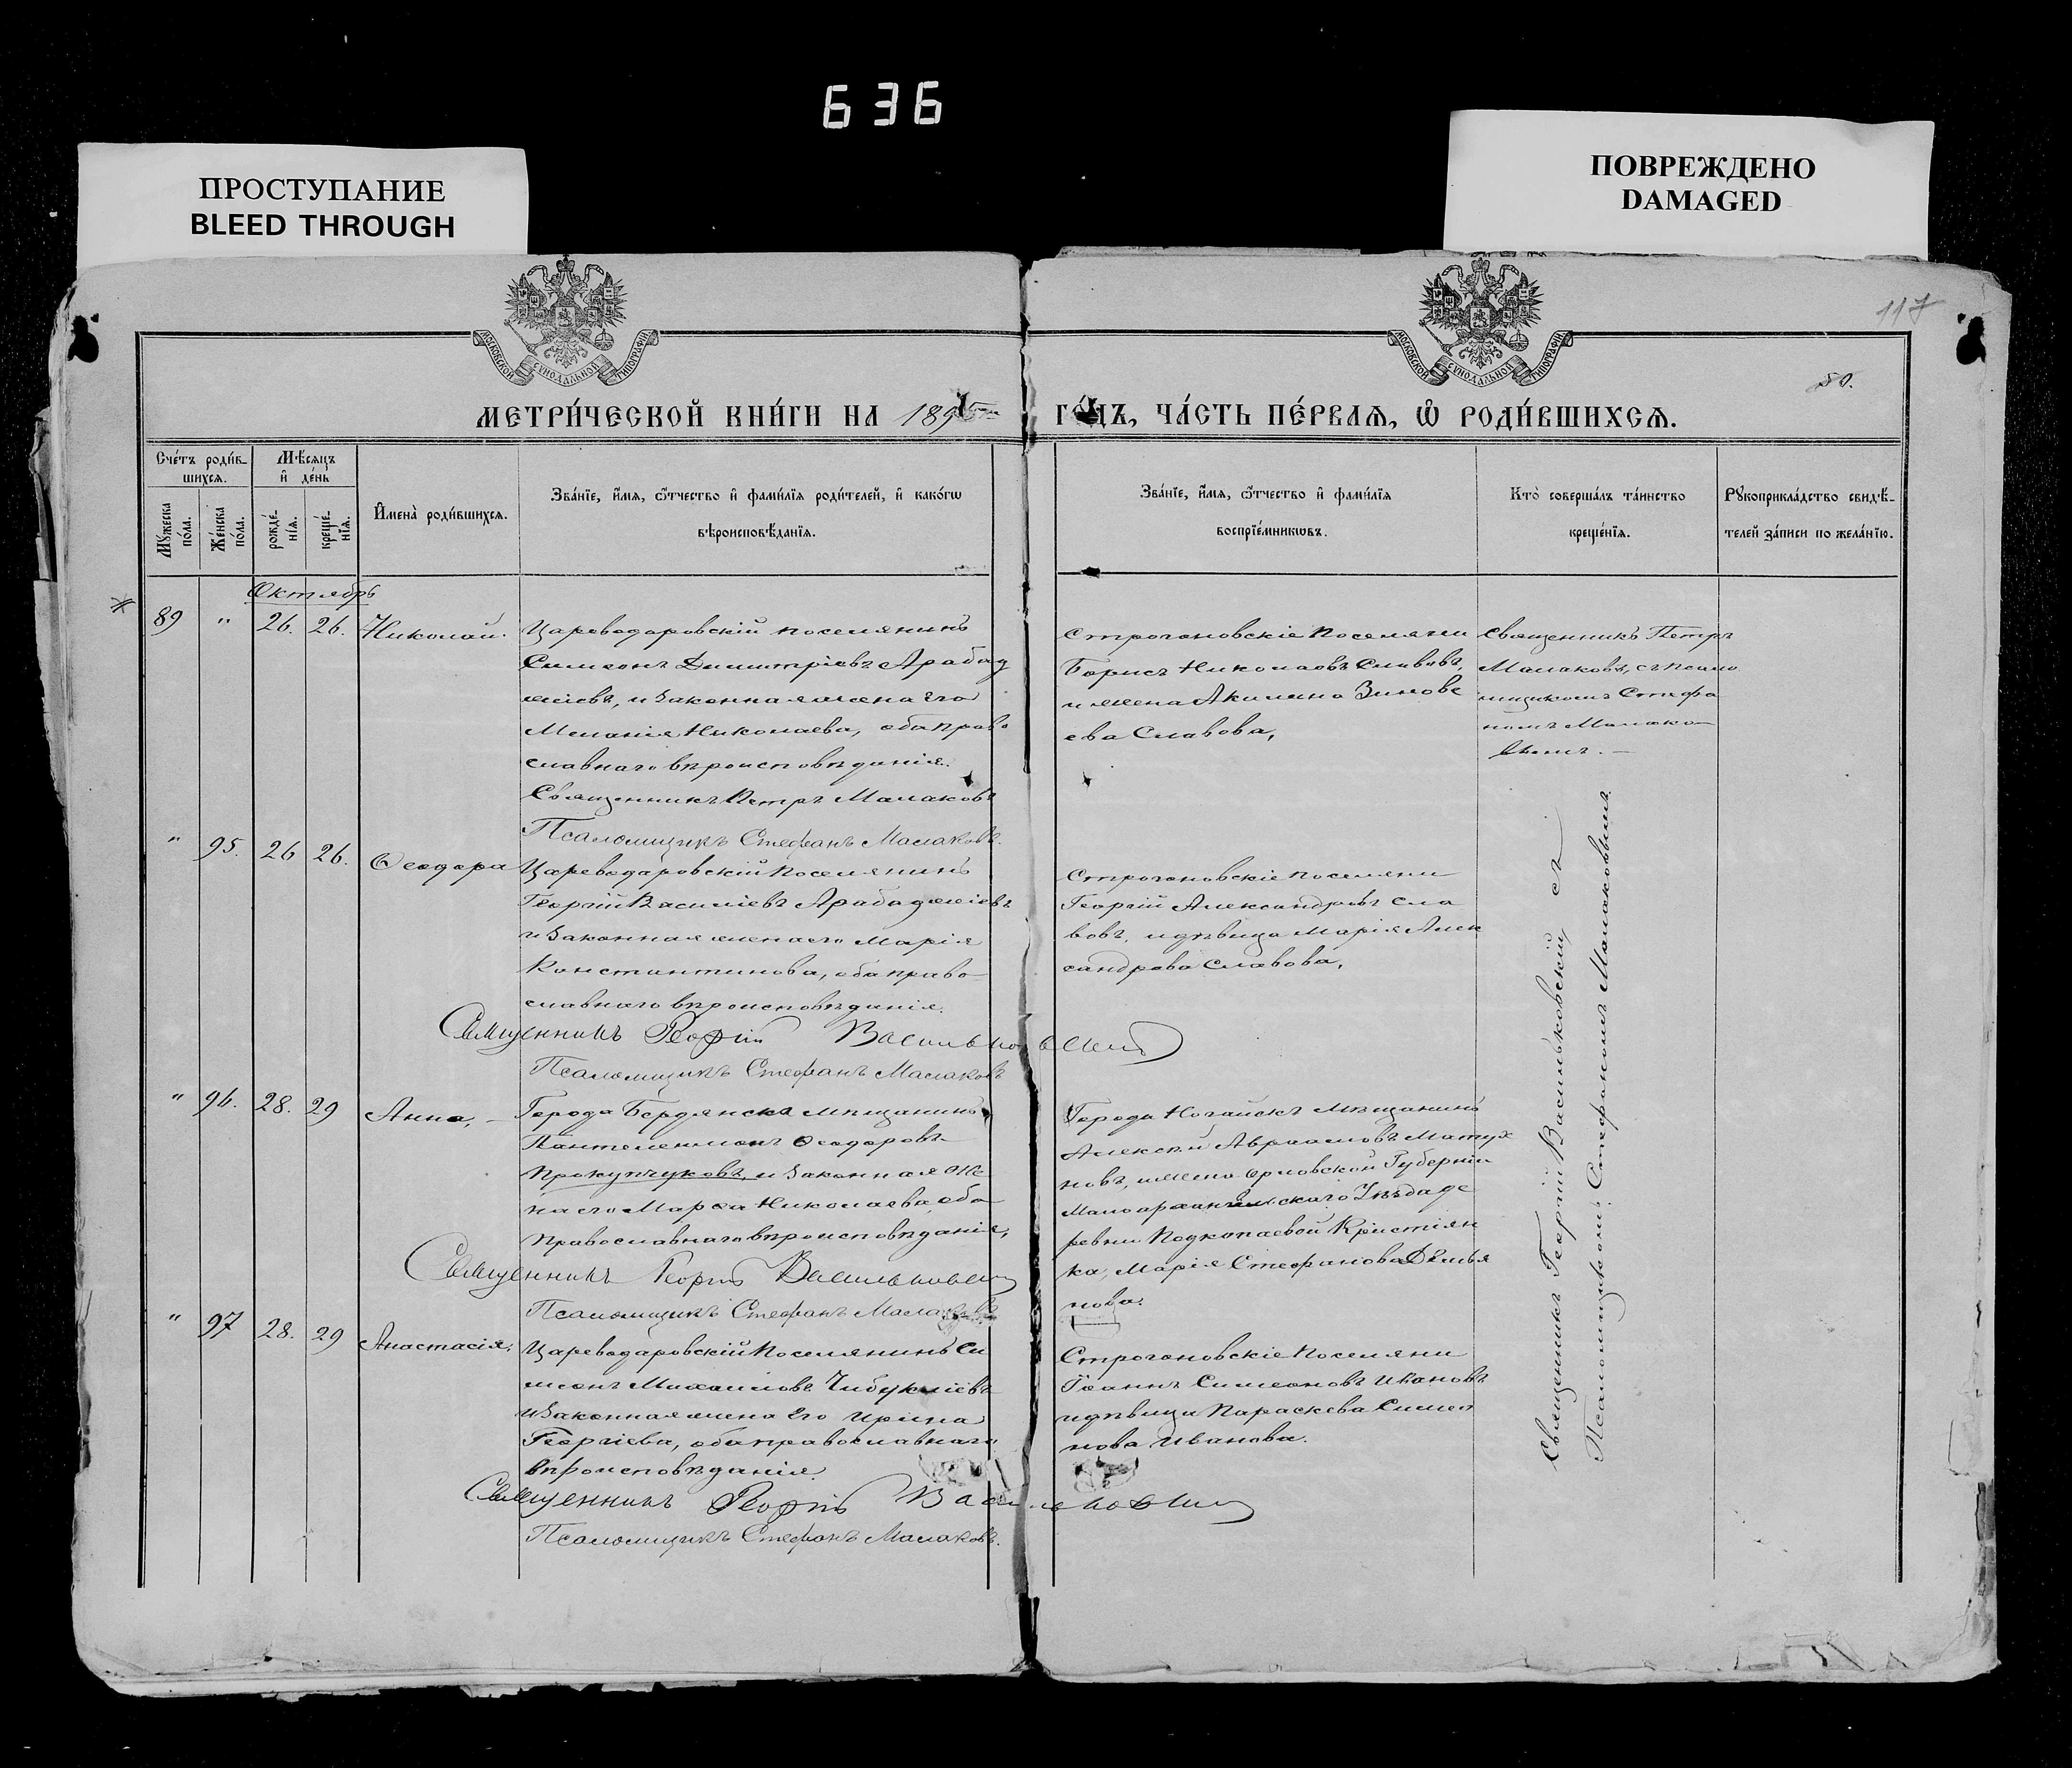 636
ПРОСТУПАНИЕ
BLEED THROUGH
ПОВРЕЖДЕНО
DAMAGED
МОСКОВСКОЙ СУНОДАЛЬНОЙ ТИПОГРАФІИ
МОСКОВСКОЙ СУНОДАЛЬНОЙ ТИПОГРАФІИ
117
80.
МЕТРИ́ЧЕСКОЙ КНИ́ГИ НА 1895
ГО́ДЪ, ЧА́СТЬ ПЕ́РВАѦ, Ѿ РОДИ́ВШИХСѦ.
Сче́тъ роди́в-
шихсѧ.
Мѣ́сѧцъ
и҆ де́нь
Мꙋ́жеска
по́ла.
Же́нска
по́ла.
рожде́-
нїѧ.
креще́-
нїѧ.
И҆мена̀ роди́вшихсѧ.
Зва́нїе, и҆́мѧ, ѻ҆́тчество и҆ фами́лїѧ роди́телей, и҆ како́гѡ
вѣроисповѣ́данїѧ.
Зва́нїе, и҆́мѧ, ѻ҆́тчество и҆ фами́лїѧ
воспрїе́мникѡвъ.
Кто̀ соверша́лъ та́инство
креще́нїѧ.
Рꙋкоприкла́дство свидѣ́-
телей за́писи по жела́нїю.
Октябрь
89 " 26. 26. Николай.
Цареводаровскій поселянинъ
Симеонъ Димитріевъ Арабад
жіевъ, и законная жена его
Меланія Николаева, оба право
славнаго вѣроисповѣданія.
Священникъ Петръ Малаковъ
Псаломщикъ Стефанъ Малаковъ.
Строгоновскіе поселяни
Борисъ Николаевъ Славовъ,
и жена Акилина Зинове
ева Славова,
Священникъ Петръ
Малаковъ, съ псало
мщикомъ Стефа
номъ Малако-
вымъ. —
" 95. 26 26. Ѳеодора
Цареводаровскій поселянинъ
Георгій Василіевъ Арабаджіевъ
и законная жена его Марія
Константинова, оба право-
славнаго вѣроисповѣданія.
Священникъ Георгій Васильковскій
Псаломщикъ Стефанъ Малаковъ
Строгоновскіе поселяни
Георгій Александровъ Сла
вовъ, и дѣвица Марія Алек
сандрова Славова,
" 96. 28. 29 Анна, —
Города Бердянска мѣщанинъ
Пантелеимонъ Ѳеодоровъ
Прокупчуковъ, и законная же
на его Марѳа Николаева, оба
православнаго вѣроисповѣданія,
Священникъ Георгій Васильковскій
Псаломщикъ Стефанъ Малаковъ
Города Ногайскъ мѣщанинъ
Алексѣй Авраамовъ Матух
новъ, жена Орловской Губерніи
Малоархангельскаго Уѣзда де
ревни Подкопаевой Крістіян
ка, Марія Стефанова Демья
нова.
" 97 28. 29 Анастасія.
Цареводаровскій поселянинъ Си
меонъ Михаиловъ Чибукліевъ
и законная жена его Ирина
Георгіева, оба православнаго
вѣроисповѣданія.
Священникъ Георгій Васильковскій
Псаломщикъ Стефанъ Малаковъ.
Строгоновскіе поселяни
Іоаннъ Симеоновъ Ивановъ
и дѣвица Параскева Симео
нова Иванова.
Священникъ Георгій Васильковскій, съ
Псаломщикомъ Стефаномъ Малаковымъ.